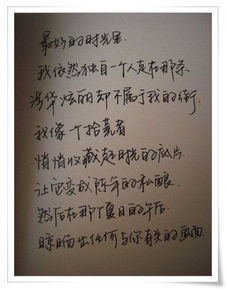 最好的时光里
我依然独自一个人走在那条
浮华炫的却不属于我的街
我像个拾荒者
悄悄收藏起时光的底片
让它变成陈年的私酿
然后在那个夏日的午后
晾晒出任何与你有关的画面